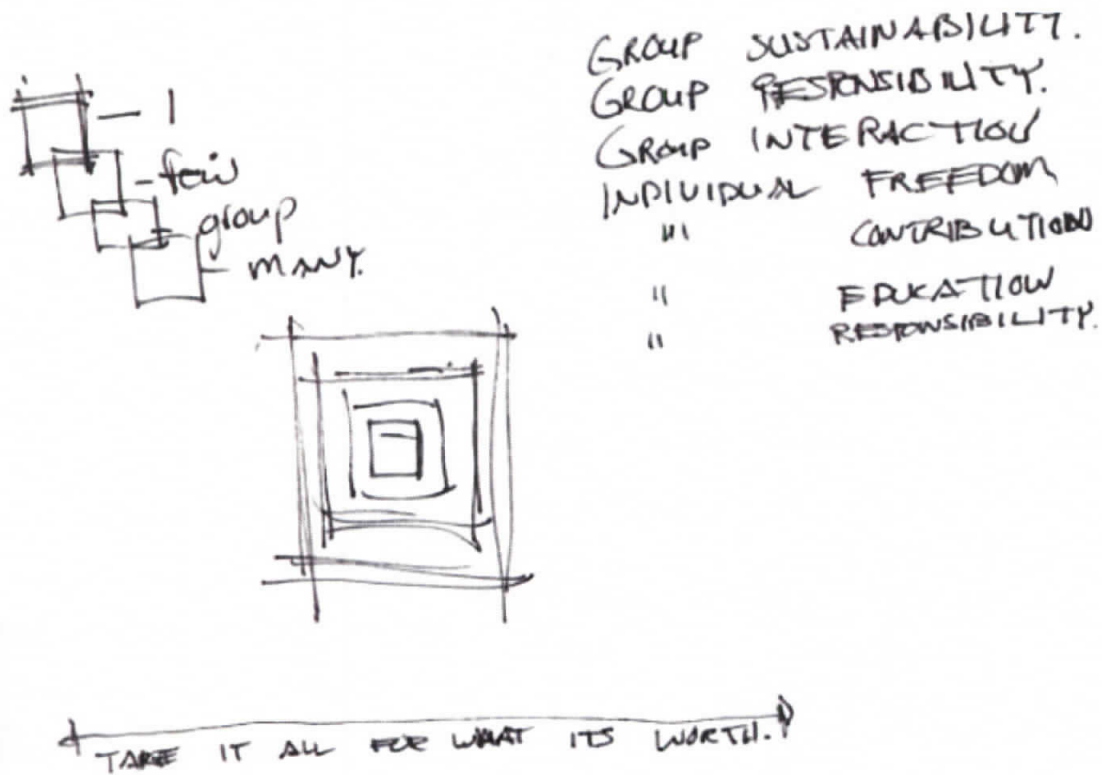 1
few
group
many.
GROUP SUSTAINABILITY.
GROUP RESPONSIBILITY.
GROUP INTERACTION
INDIVIDUAL FREEDOM
"' CONTRIBUTION
" EDUCATION
" RESPONSIBILITY.
TAKE IT ALL FOR WHAT ITS WORTH.